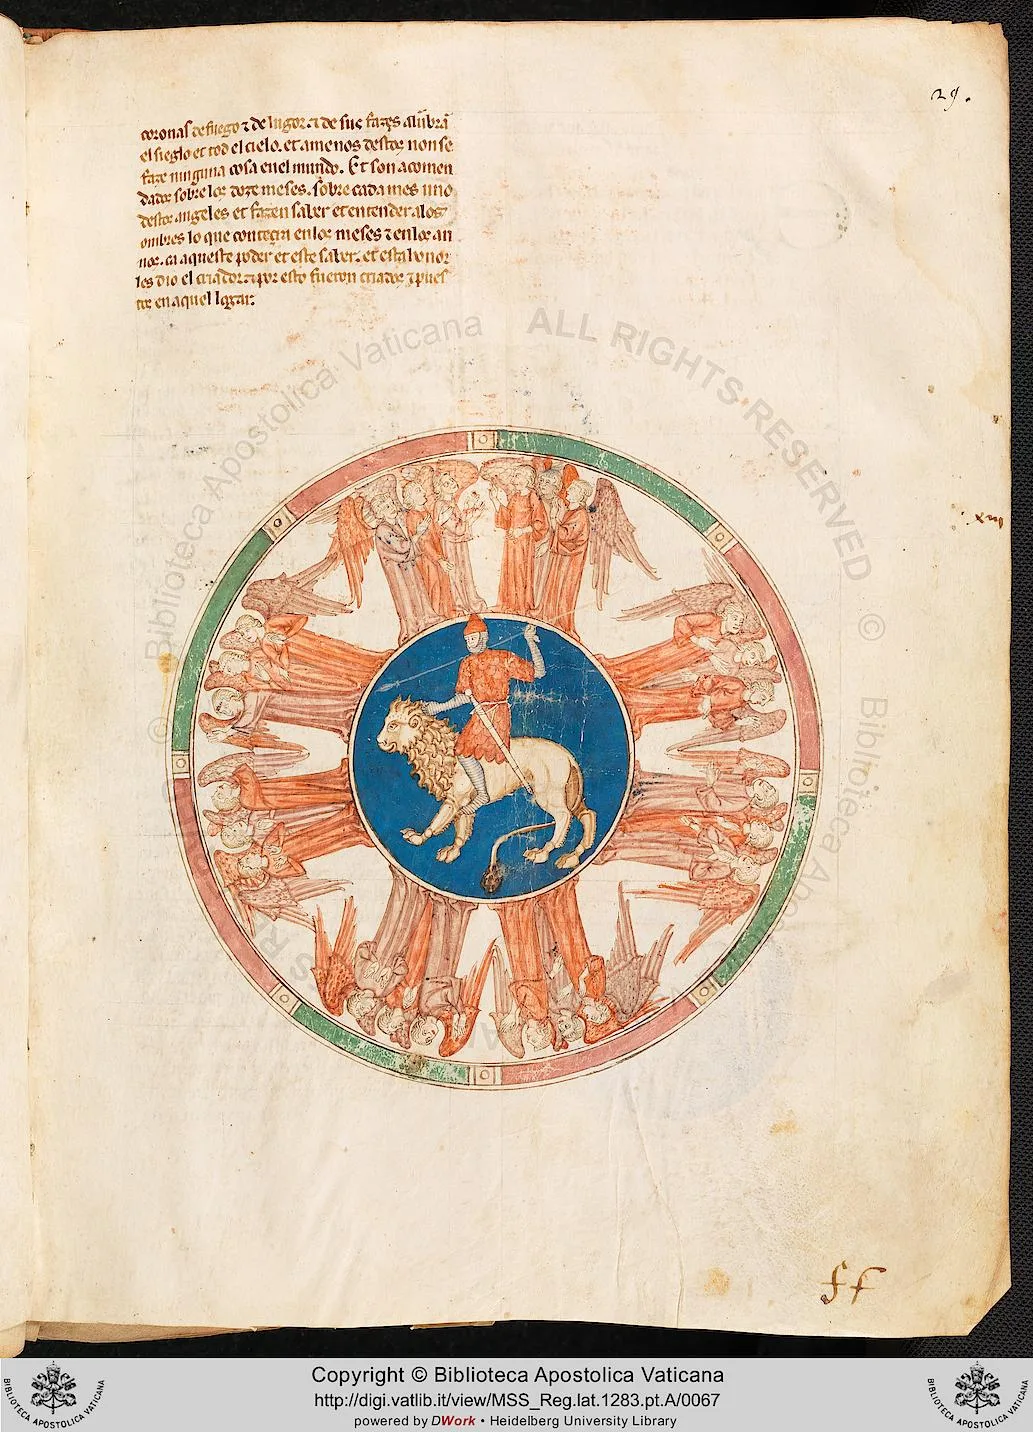 29.
coronas de fuego ⁊ de lugor. ⁊ de sus fazes alũbrã
el sieglo et tod el cielo. et amenos destos non se
faze ninguna cosa en el mundo. Et son acomen
dados sobre los doze meses. sobre cada mes uno
destos angeles et fazen saber et entender a los
ombres lo que contecra en los meses ⁊ en los an
nos. ca aqueste poder et este saber. et esta honor
les dio el criador. ⁊ por esto fueron criados ⁊ pues
tos en aquel logar.
Biblioteca Apostolica Vaticana
ALL RIGHTS RESERVED
©
Biblioteca Apo
xiii
ff
Copyright © Biblioteca Apostolica Vaticana
http://digi.vatlib.it/view/MSS_Reg.lat.1283.pt.A/0067
powered by DWork • Heidelberg University Library
BIBLIOTECA APOSTOLICA VATICANA
BIBLIOTECA APOSTOLICA VATICANA